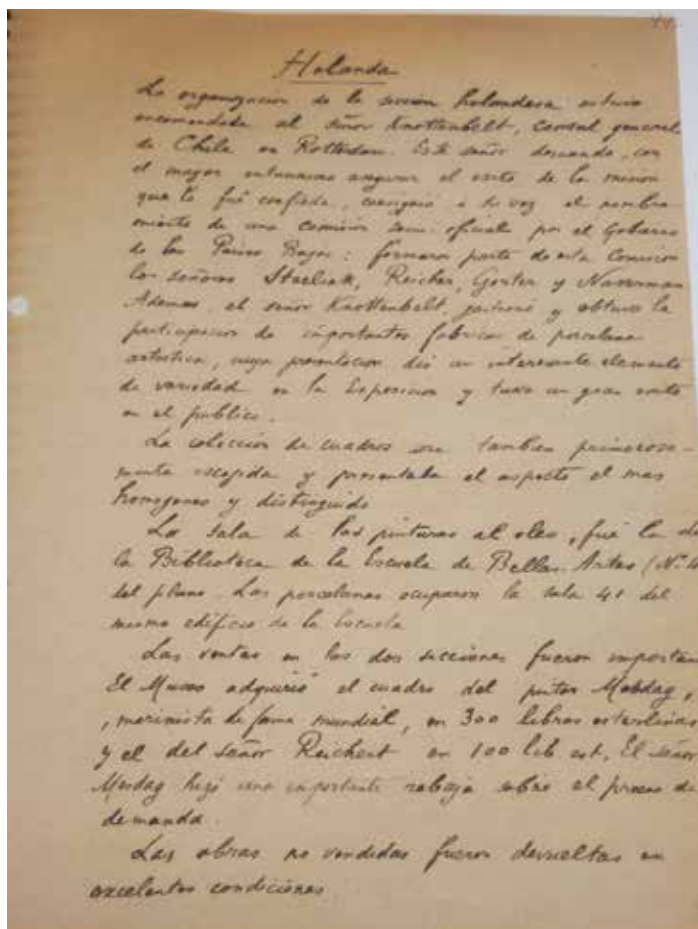 44
Holanda
La organización de la sección holandesa estuvo
encomendada al señor Knottenbelt, Consul general
de Chile en Rotterdam. Este señor deseando, con
el mayor entusiasmo asegurar el exito de la mision
que le fué confiada, consiguió a su vez el nombra-
miento de una comisión semi oficial por el Gobierno
de los Paises Bajos: formaron parte de esta Comision
los señores Reicher, Gorter y
Ademas, el señor Knottenbelt, gestionó y obtuvo la
participacion de importantes fabricas de porcelana
artistica, cuya presentacion dió un interesante elemento
de variedad en la Exposicion y tuvo un gran exito
en el publico.
La colección de cuadros era tambien primorosa-
mente escojida y presentaba el aspecto el mas
homogeneo y distinguido
La sala de las pinturas al oleo, fué la de
la Biblioteca de la Escuela de Bellas Artes (Nº
del plano. Las porcelanas ocuparon la sala 41 del
mismo edificio de la Escuela
Las ventas en las dos secciones fueron importan
El Museo adquirió el cuadro del pintor Mesdag,
, marinista de fama mundial, en 300 libras esterlinas
y el del señor Reichert en 100 lib est. El señor
Mesdag hizo una importante rebaja sobre el precio de
demanda.
Las obras no vendidas fueron devueltas en
excelentes condiciones